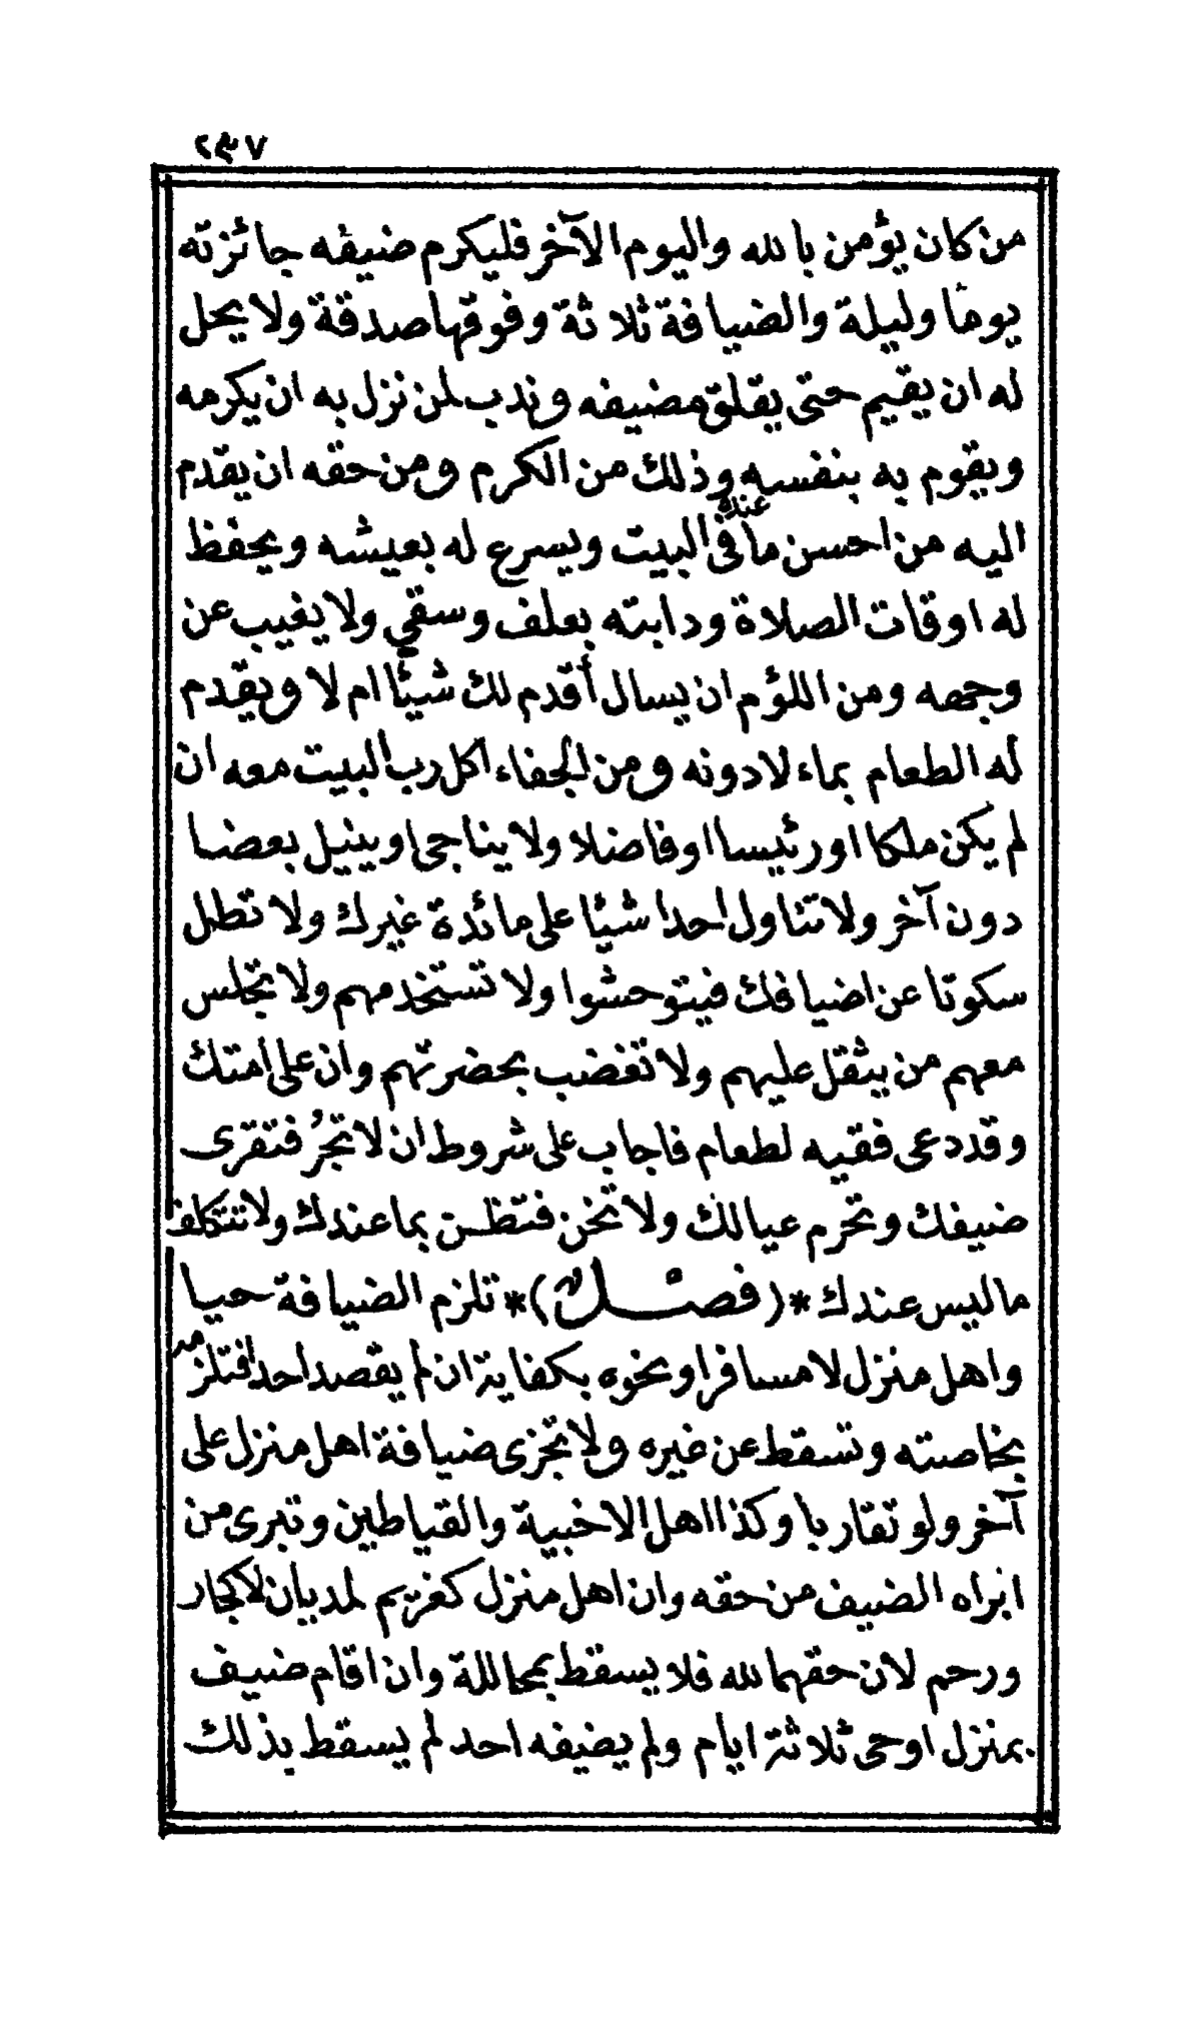 ٢٣٧
من كان يؤمن بالله واليوم الآخر فليكرم ضيفه جائزته
يوما وليلة والضيافة ثلاثة وفوقها صدقة ولا يحل
له ان يقيم حتى يقلق مضيفه وندب لمن نزل به ان يكرمه
ويقوم به بنفسه وذلك من الكرم ومن حقه ان يقدم
اليه من احسن ما عنده فى البيت ويسرع له بعيشه ويحفظ
له اوقات الصلاة ودابته بعلف وسقي ولا يغيب عن
وجهه ومن اللؤم ان يسال أقدم لك شيئا ام لا ويقدم
له الطعام بماء لا دونه ومن الجفاء اكل رب البيت معه ان
لم يكن ملكا او رئيسا او فاضلا ولا يناجى او ينيل بعضا
دون آخر ولا تناول احدا شيئا على مائدة غيرك ولا تطل
سكوتا عن اضيافك فيتوحشوا ولا تستخدمهم ولا تجلس
معهم من يثقل عليهم ولا تغضب بحضرتهم وان على أمتك
وقد دعى فقيه لطعام فاجاب على شروط ان لا تجُر فتقرى
ضيفك وتحرم عيالك ولا تخن فتظن بما عندك ولا تتكلف
ما ليس عندك *( فصل )* تلزم الضيافة حيا
واهل منزل لا مسافرا ونحوه بكفاية ان لم يقصد احدا فتلزمه
بخاصته وتسقط عن غيره ولا تجزى ضيافة اهل منزل على
آخر ولو تقاربا وكذا اهل الاخبية والقياطين وتبرى من
ابراه الضيف من حقه وان اهل منزل كغريم لمديان لا كجار
ورحم لان حقهما لله فلا يسقط بمحاللة وان اقام ضيف
بمنزل او حى ثلاثة ايام ولم يضيفه احد لم يسقط بذلك